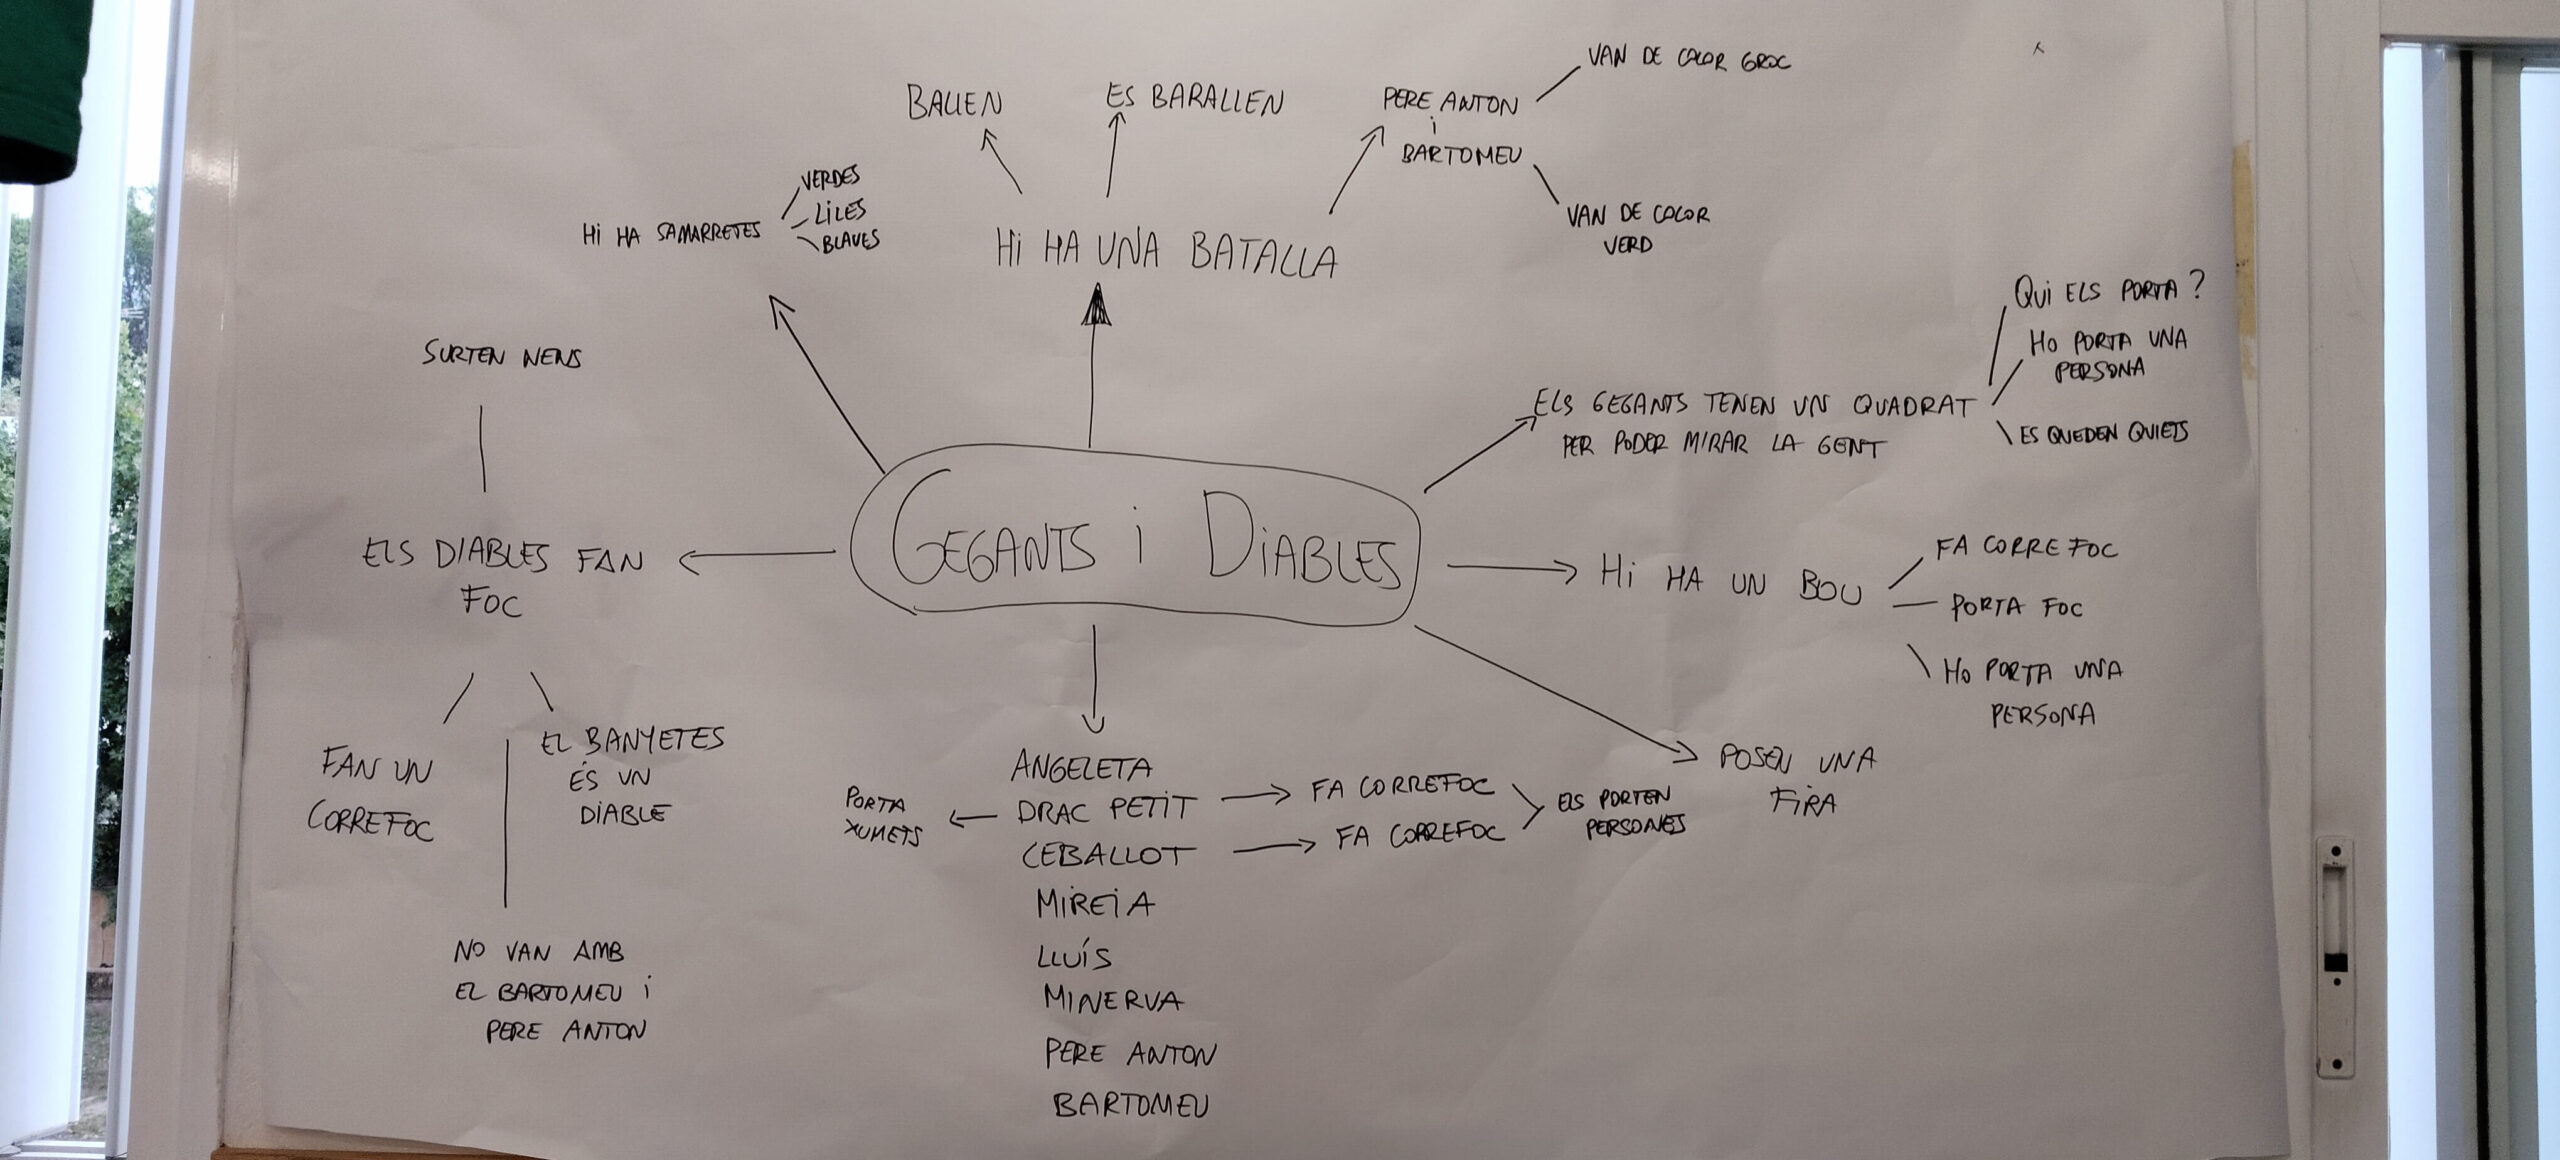 VAN DE COLOR GROC
BALLEN
ES BARALLEN
PERE ANTON
i
BARTOMEU
VAN DE COLOR
VERD
HI HA SAMARRETES
VERDES
LILES
BLAVES
HI HA UNA BATALLA
QUI ELS PORTA?
HO PORTA UNA
PERSONA
ELS GEGANTS TENEN UN QUADRAT
PER PODER MIRAR LA GENT
ES QUEDEN QUIETS
SURTEN NENS
ELS DIABLES FAN
FOC
GEGANTS i DIABLES
HI HA UN BOU
FA CORREFOC
PORTA FOC
HO PORTA UNA
PERSONA
FAN UN
CORREFOC
EL BANYETES
ÉS UN
DIABLE
NO VAN AMB
EL BARTOMEU i
PERE ANTON
ANGELETA
DRAC PETIT
CEBALLOT
MIREIA
LLUÍS
MINERVA
PERE ANTON
BARTOMEU
PORTA
XUMETS
FA CORREFOC
FA CORREFOC
ELS PORTEN
PERSONES
POSEN UNA
FIRA